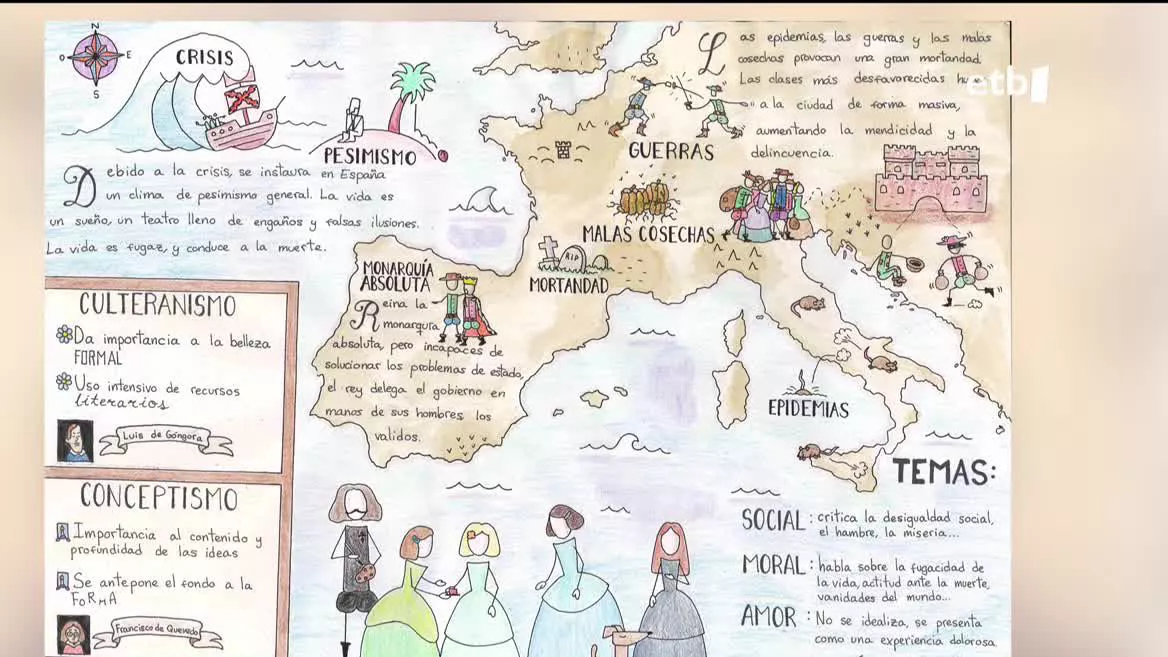 N
O
E
S
CRISIS
PESIMISMO
Debido a la crisis, se instaura en España
un clima de pesimismo general. La vida es
un sueño, un teatro lleno de engaños y falsas ilusiones.
La vida es fugaz, y conduce a la muerte.
Las epidemias, las guerras y las malas
cosechas provocan una gran mortandad.
Las clases más desfavorecidas
a la ciudad de forma masiva,
aumentando la mendicidad y la
delincuencia.
etb1
GUERRAS
MALAS COSECHAS
RIP
MORTANDAD
MONARQUÍA
ABSOLUTA
Reina la
monarquía
absoluta, pero incapaces de
solucionar los problemas de estado,
el rey delega el gobierno en
manos de sus hombres, los
validos.
EPIDEMIAS
CULTERANISMO
Da importancia a la belleza
FORMAL
Uso intensivo de recursos
literarios
Luis de Góngora
CONCEPTISMO
Importancia al contenido y
profundidad de las ideas
Se antepone el fondo a la
FORMA
Francisco de Quevedo
TEMAS:
SOCIAL: critica la desigualdad social,
el hambre, la miseria...
MORAL: habla sobre la fugacidad de
la vida, actitud ante la muerte,
vanidades del mundo...
AMOR: No se idealiza, se presenta
como una experiencia dolorosa.